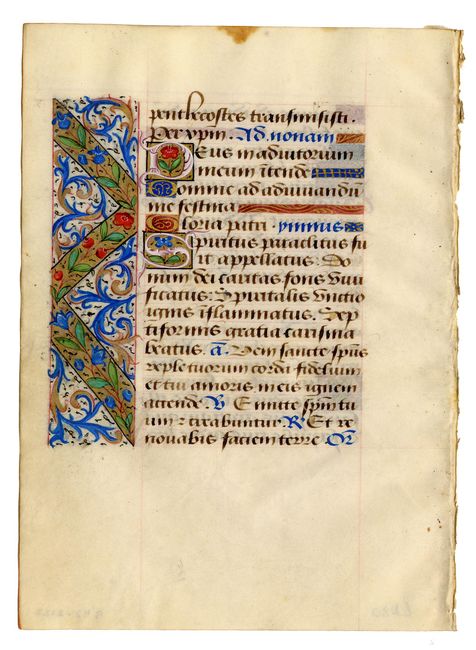 pentecostes transmisisti.
Per xpm. Ad nonam
Deus in adiutorium
meum itende
Domine ad adiuuandu
me festina
Gloria patri. ymnus
Spiritus paraclitus fu
it appellatus. Do
num dei caritas fons viui
ficatus. Spiritalis vnctio
ignis iflammatus. Sep
tiformis gratia carisma
beatus. a. Veni sancte spus
reple tuorum corda fidelium
et tui amoris in eis ignem
accende. V Emitte spm tu
um z creabuntur. R Et re
nouabis faciem terre. Or